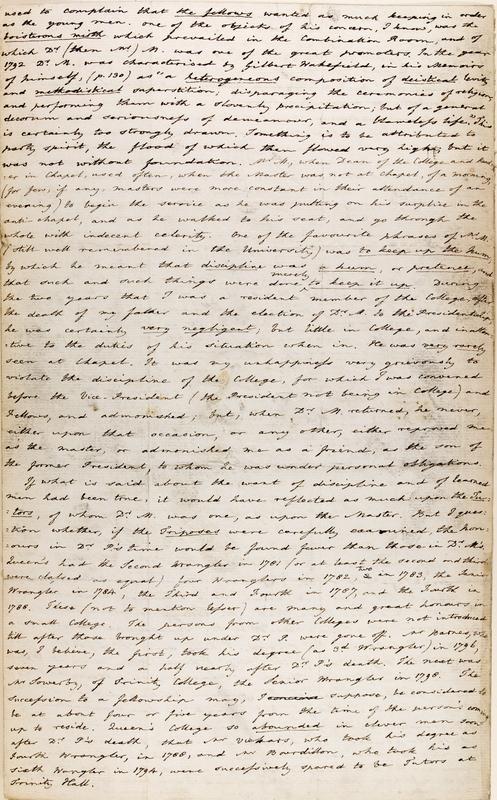 used to complain that the fellows wanted as much keeping in order
as the young men. one of the objects of his concern, I know, was the
boisterous mirth which prevailed in the Combination Room, and of
which Dr. (then Mr.) M. was one of the great promoters. In the year
1792 Dr. M. was characterised by Gilbert Wakefield, in his Memoirs
of himself, (p. 130) as "a heterogeneous composition of deistical levity
and methodistical superstition, disparaging the ceremonies of religion
and performing them with a slovenly precipitation; but of a general
decorum and seriousness of demeanour, and a blameless life." This
is certainly too strongly drawn. Something is to be attributed to
party spirit, the flood of which then flowed very high; but it
was not without foundation. Mr. M., when Dean of the College and
er in Chapel, used often, when the Master was not at chapel, of a morning,
(for few, if any, masters were more constant in their attendance of an
evening) to begin the service as he was putting on his surplice in the
anti chapel, and as he walked to his seat, and go through the
whole with indecent celerity. One of the favourite phrases of Mr. M.
(still well remembered in the University) was to keep up the hum
by which he meant that discipline was a hum, or pretence, and
that such and such things were done merely to keep it up. During
the two years that I was a resident member of the College, after
the death of my father and the election of Dr. M. to the Presidentship
he was certainly very negligent, but little in College, and inatten
tive to the duties of his situation when in. He was very rarely
seen at chapel. It was my unhappiness very grievously to
violate the discipline of the College, for which I was convened
before the Vice-President (the President not being in College) and
Fellows, and admonished; but, when Dr. M. returned, he never,
either upon that occasion, or any other, either reproved me
as the master, or admonished me as a friend, as the son of
the former President, to whom he was under personal obligations.
If what is said about the want of discipline and of learned
men had been true, it would have reflected as much upon the Tu-
tors, of whom Dr. M. was one, as upon the Master. But I ques-
tion whether, if the Triposes were carefully examined, the hon-
ours in Dr. P's time would be found fewer than those in Dr. M's.
Queen's had the Second Wrangler in 1781 (or at least the second and third
were classed as equal) four Wranglers in 1782, two in 1783, the Senior
Wrangler in 1784, the Third and Fourth in 1787, and the Fourth in
1788. These (not to mention lesser) are many and great honours in
a small College. The persons from other Colleges were not introduced
till after those brought up under Dr. P. were gone off. Mr Barnes, who
was, I believe, the first, took his degree (as 3d Wrangler) in 1796,
seven years and a half nearly after Dr. P's death. The next was
Mr Sowerby, of Trinity College, the Senior Wrangler in 1798. The
succession to a fellowship may, I conceive suppose, be considered to
be at about four or five years from the time of the person's coming
up to reside. Queen's College so abounded in clever men soon
after Dr. P's death, that Mr Vickers, who took his degree as
Fourth Wrangler, in 1788, and Mr Bourdillon, who took his as
Sixth Wrangler in 1794, were successively spared to be Tutors at
Trinity Hall.